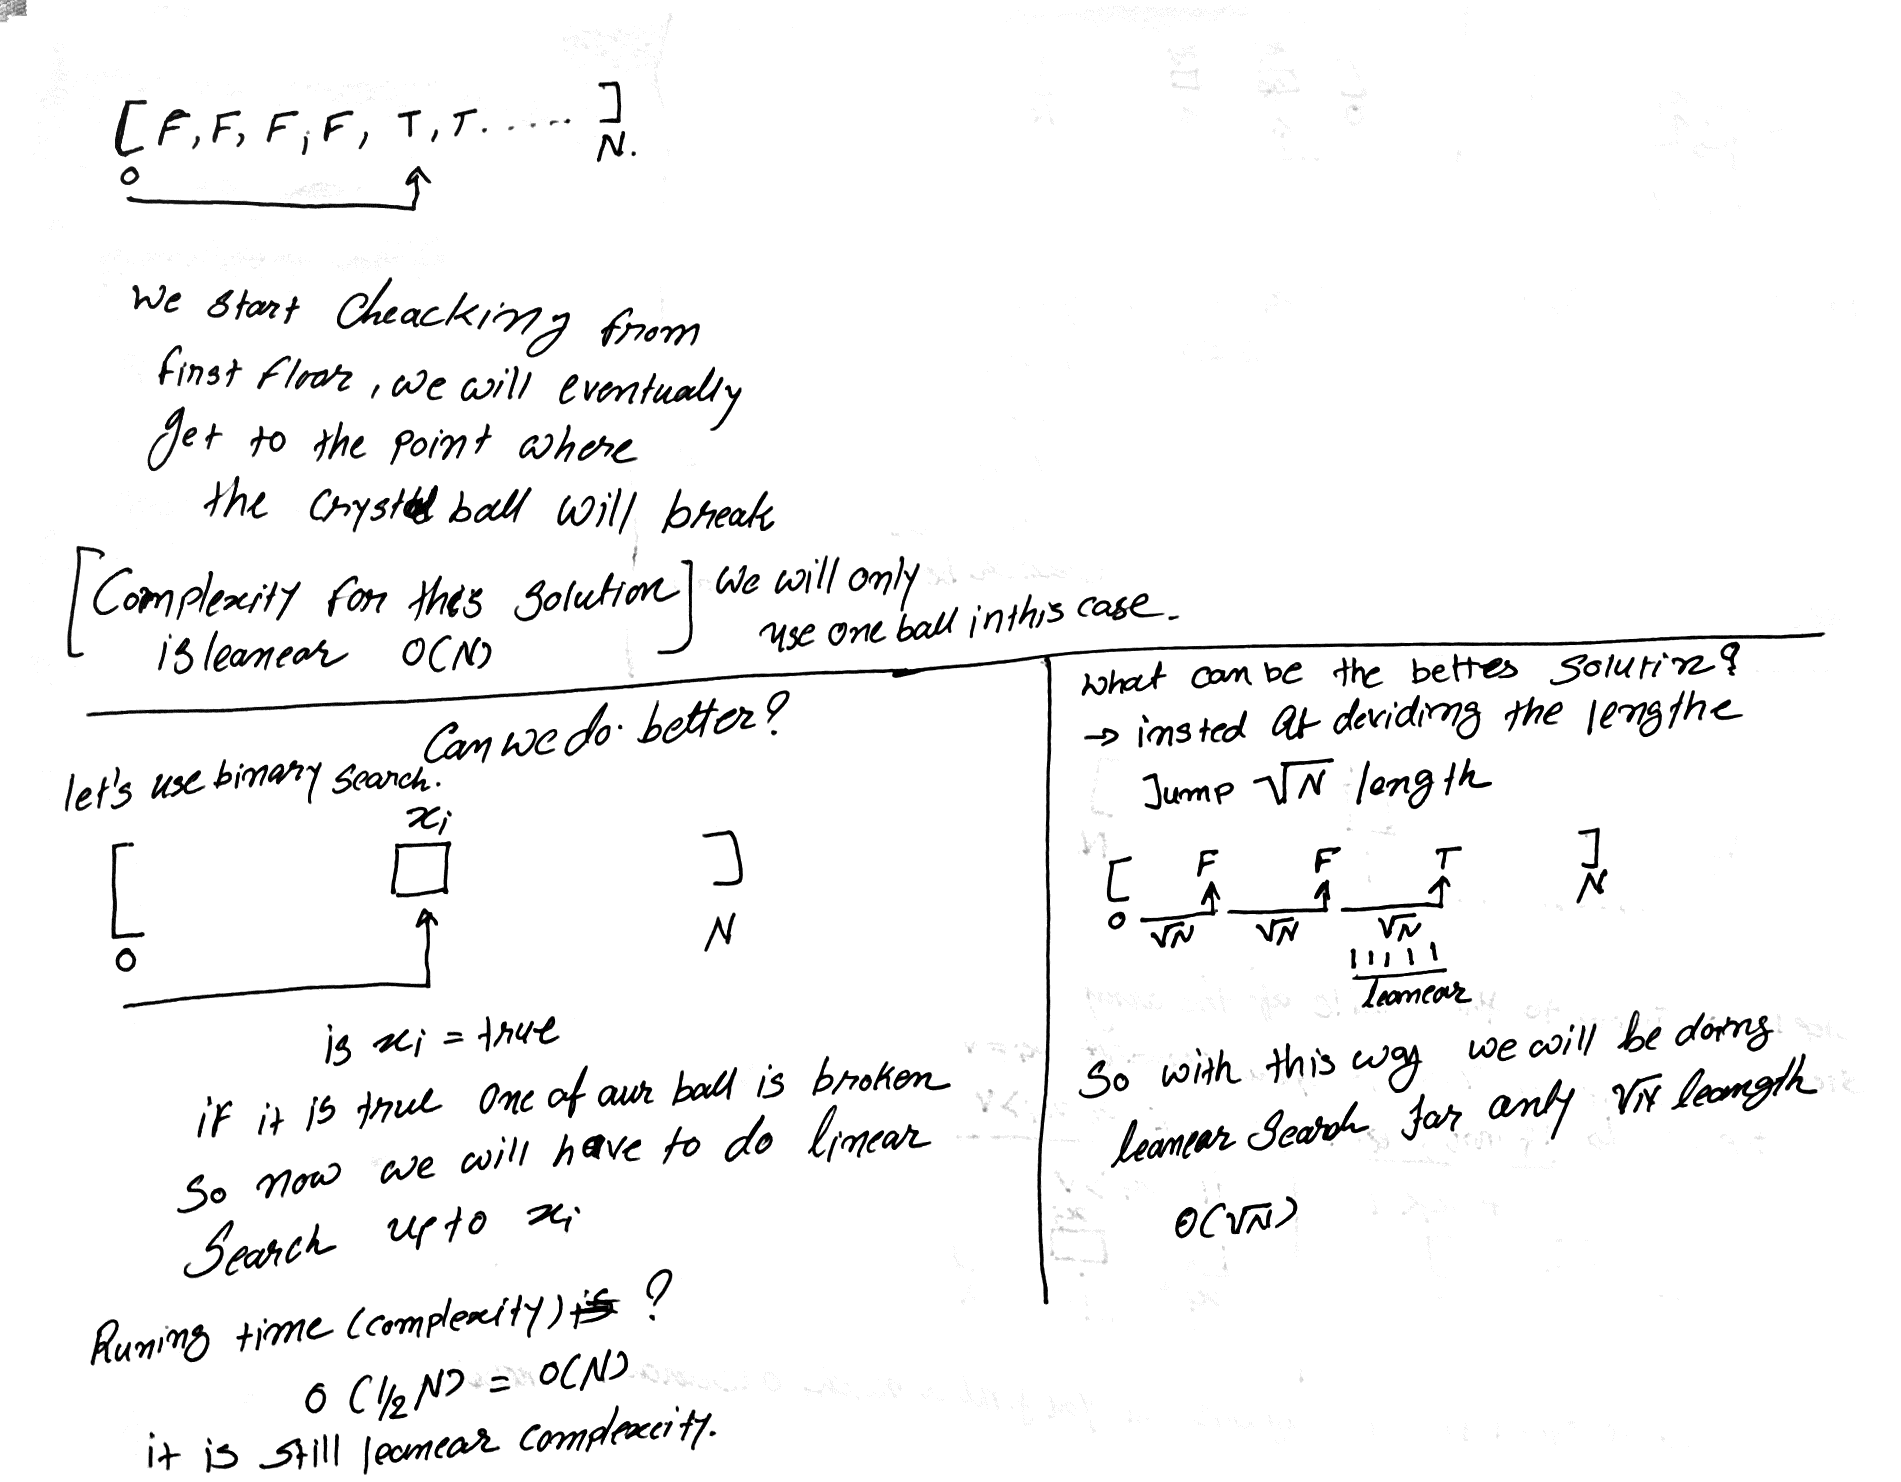 [ F, F, F, F, T, T. ..... ]
0 N.
We start Cheacking from
first floor, we will eventually
get to the point where
the crystal ball will break
[Complexity for this solution
is leanear O(N)]
We will only
use one ball in this case.
Can we do better?
let's use binary search.
xi
[ ]
0 N
is xi = true
if it is true one of our ball is broken
So now we will have to do linear
Search up to xi
Runing time (complexity) is ?
O (1/2 N) = O(N)
it is still leanear complexcity.
What can be the better solutin?
→ insted of deviding the lengthe
Jump √N length
[ F F T ]
0 √N √N √N N
leanear
So with this way we will be doing
leanear Search for only √N leangth
O(√N)